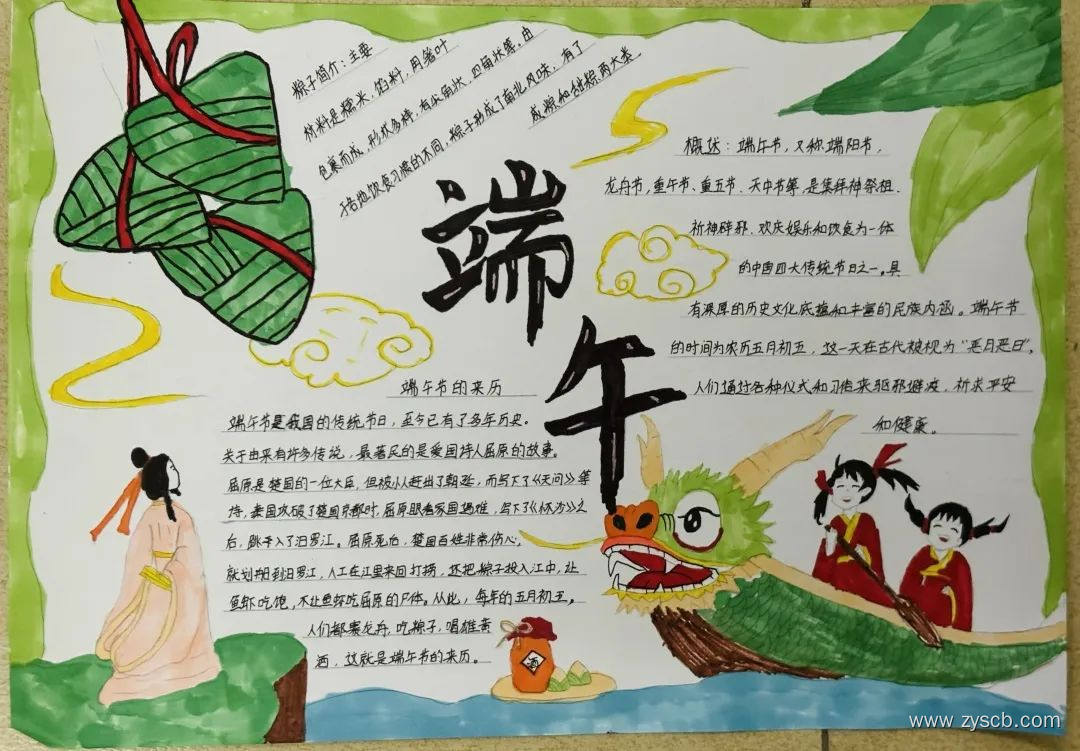 粽子简介：主要
材料是糯米、馅料，用箬叶
包裹而成，形状多样，有尖角状、四角状等。由
于各地饮食习惯的不同，粽子形成了南北风味，有了
咸粽和甜粽两大类
端午
概述：端午节，又称端阳节，
龙舟节，重午节、重五节、天中节等，是集拜神祭祖、
祈神辟邪、欢庆娱乐和饮食为一体
的中国四大传统节日之一。具
有深厚的历史文化底蕴和丰富的民族内涵。端午节
的时间为农历五月初五，这一天在古代被视为“恶月恶日”，
人们通过各种仪式和习俗来驱邪避疫，祈求平安
和健康。
端午节的来历
端午节是我国的传统节日，至今已有了多年历史。
关于由来有许多传说，最著名的是爱国诗人屈原的故事。
屈原是楚国的一位大臣，但被小人赶出了朝廷，而写下了《天问》等
诗，秦国攻破了楚国京都时，屈原眼看家国遇难，写下了《怀沙》之
后，跳入了汨罗江。屈原死后，楚国百姓非常伤心，
就划船到汨罗江，人工在江里来回打捞，还把粽子投入江中，让
鱼虾吃饱，不让鱼虾吃屈原的尸体。从此，每年的五月初五。
人们都赛龙舟，吃粽子，喝雄黄
酒，这就是端午节的来历。
酒
www.zyscb.com